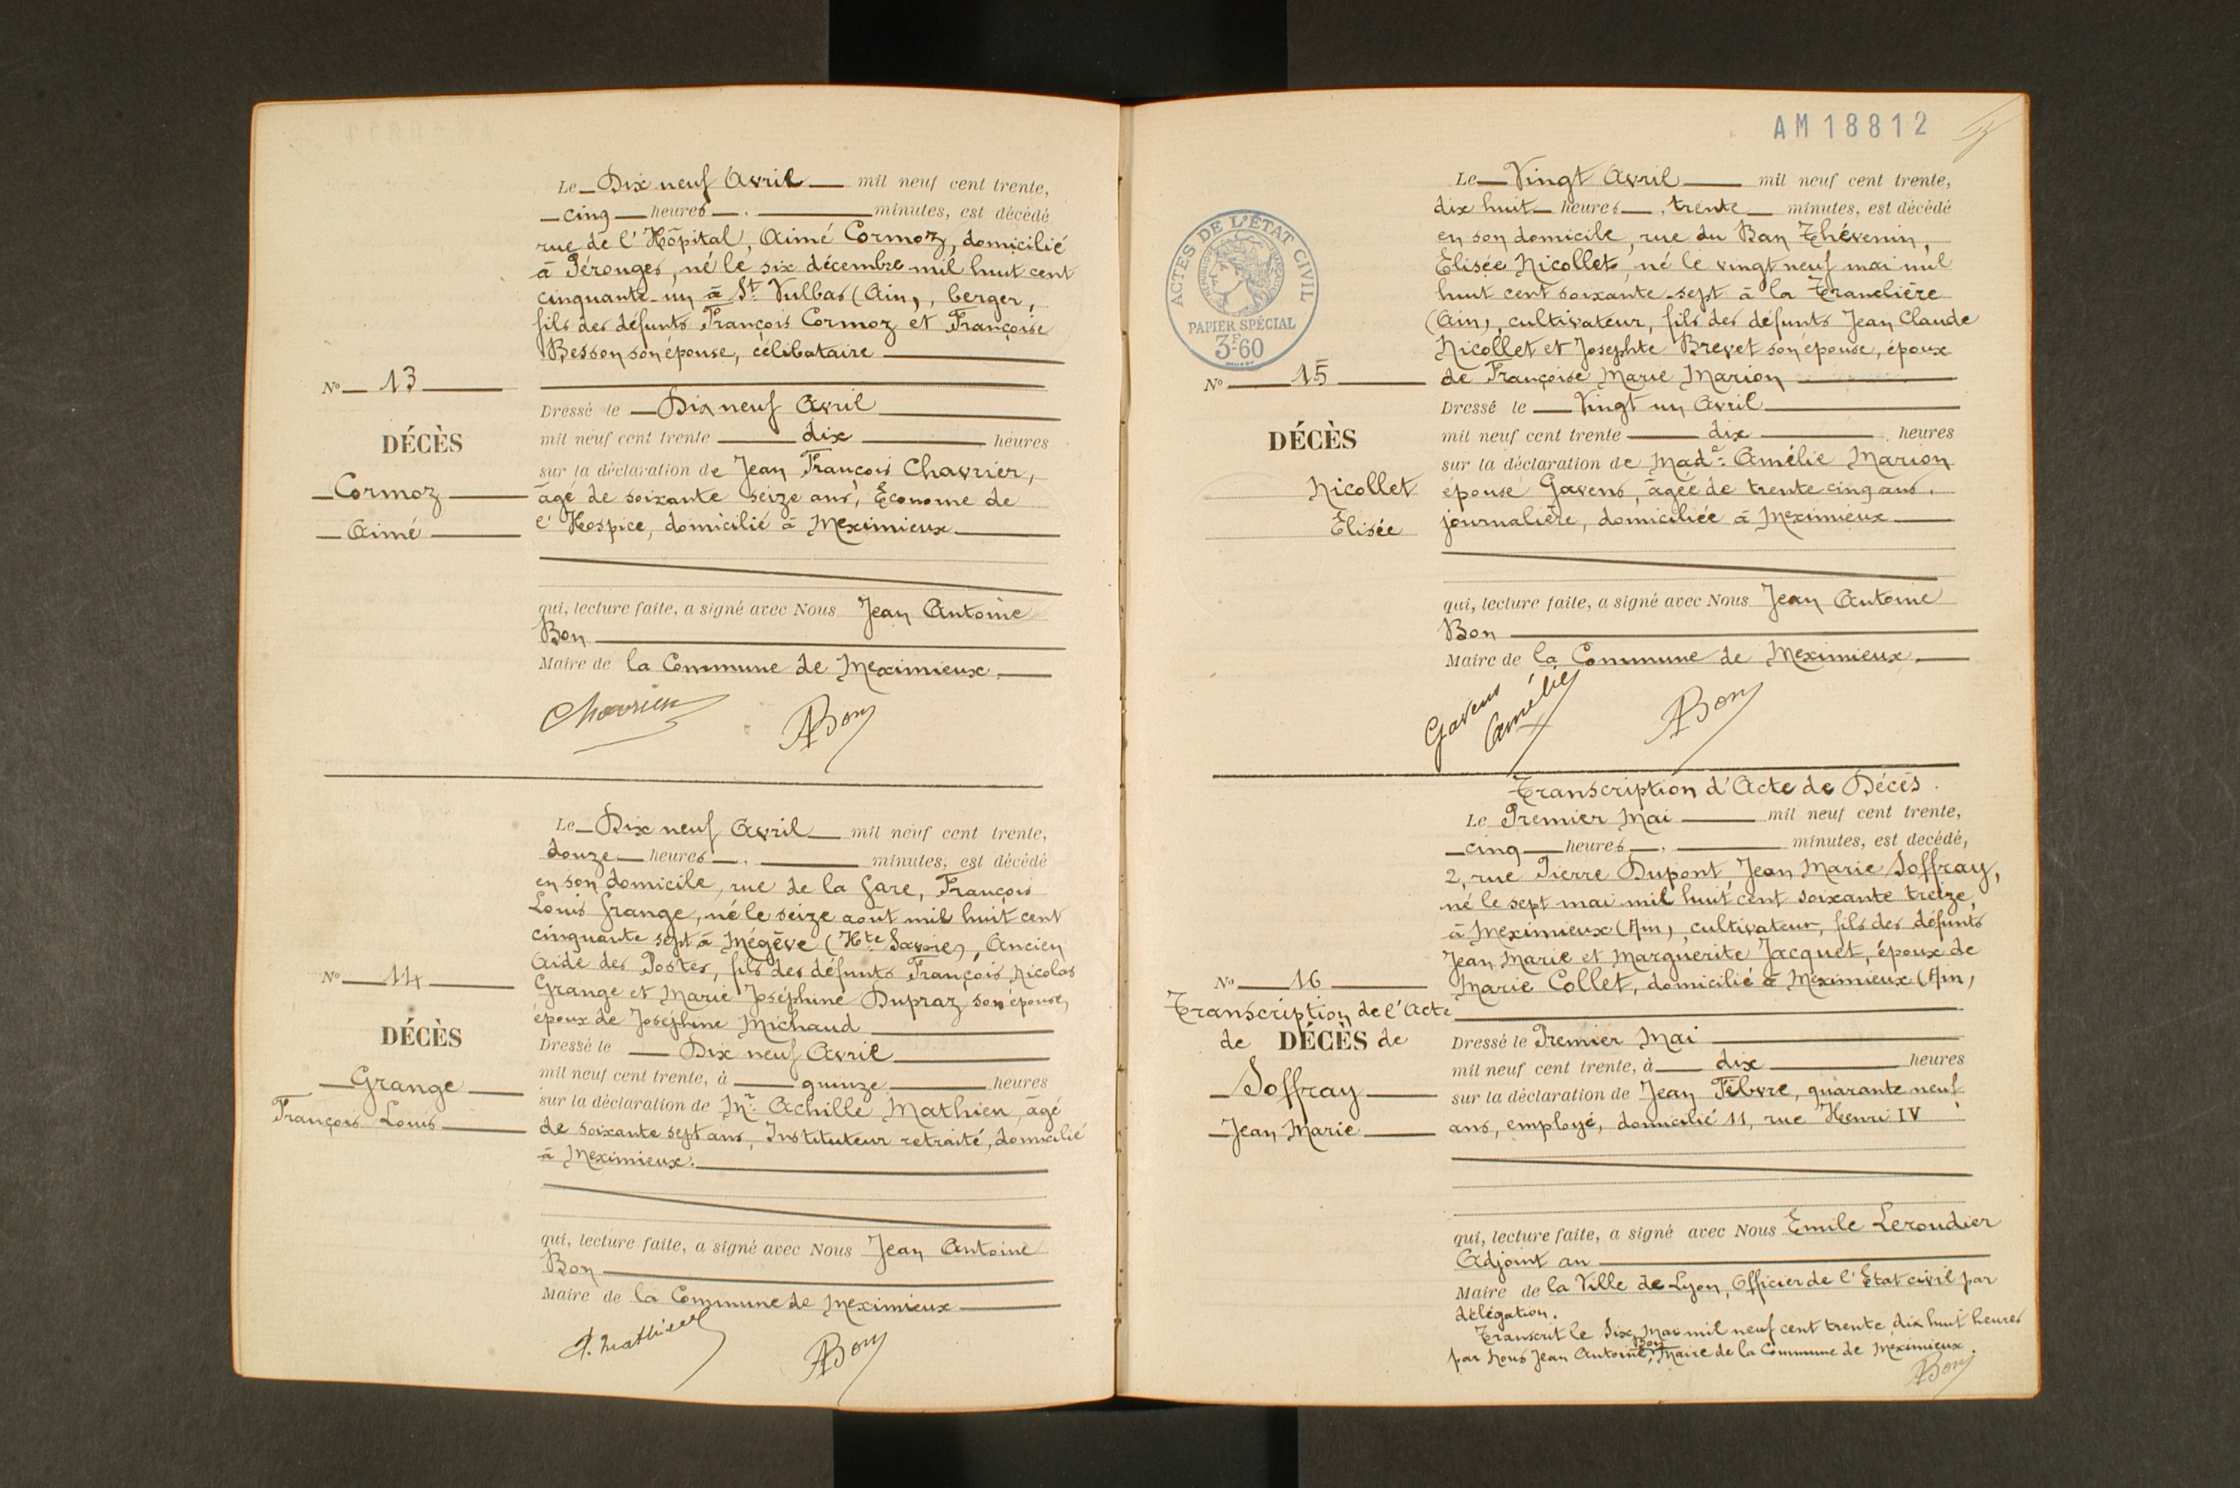 Le Dix neuf Avril mil neuf cent trente,
cinq heures, minutes, est décédé
rue de l'Hôpital, Aimé Cormoz, domicilié
à Pérouges, né le six décembre mil huit cent
cinquante-un à St Vulbas (Ain), berger,
fils des défunts François Cormoz et Françoise
Besson son épouse, célibataire
No 13
DÉCÈS
Cormoz
Aimé
Dressé le Dix neuf Avril
mil neuf cent trente dix heures
sur la déclaration de Jean François Chavrier,
âgé de soixante seize ans, Econome de
l'Hospice, domicilié à Meximieux
qui, lecture faite, a signé avec Nous Jean Antoine
Bon
Maire de la Commune de Meximieux
Chavrier
ABon
Le Dix neuf Avril mil neuf cent trente,
douze heures, minutes, est décédé
en son domicile, rue de la Gare, François
Louis Grange, né le seize août mil huit cent
cinquante sept à Mégève (Hte Savoie), Ancien
Aide des Postes, fils des défunts François Nicolas
Grange et Marie Joséphine Dupraz son épouse,
époux de Joséphine Michaud
No 14
DÉCÈS
Grange
François Louis
Dressé le Dix neuf Avril
mil neuf cent trente, à quinze heures
sur la déclaration de Mr Achille Mathieu, âgé
de soixante sept ans, Instituteur retraité, domicilié
à Meximieux.
qui, lecture faite, a signé avec Nous Jean Antoine
Bon
Maire de la Commune de Meximieux
A. Mathieu
ABon
AM18812
ACTES DE L'ÉTAT CIVIL
RÉPUBLIQUE FRANÇAISE
PAPIER SPÉCIAL
3F60
Le Vingt Avril mil neuf cent trente,
dix huit heures, trente minutes, est décédé
en son domicile, rue du Ban Thévenin,
Elisée Nicollet, né le vingt neuf mai mil
huit cent soixante-sept à la Tranclière
(Ain), cultivateur, fils des défunts Jean Claude
Nicollet et Josephte Brevet son épouse, époux
de Françoise Marie Marion
No 15
DÉCÈS
Nicollet
Elisée
Dressé le Vingt un Avril
mil neuf cent trente dix heures
sur la déclaration de Made Amélie Marion
épouse Gavens, âgée de trente cinq ans,
journalière, domiciliée à Meximieux
qui, lecture faite, a signé avec Nous Jean Antoine
Bon
Maire de la Commune de Meximieux
Gavens
Amélie
ABon
Transcription d'Acte de Décès.
Le Premier Mai mil neuf cent trente,
cinq heures, minutes, est décédé,
2, rue Pierre Dupont, Jean Marie Soffray,
né le sept mai mil huit cent soixante treize,
à Meximieux (Ain), cultivateur, fils des défunts
Jean Marie et Marguerite Jacquet, époux de
Marie Collet, domicilié à Meximieux (Ain)
No 16
Transcription de l'Acte
de DÉCÈS de
Soffray
Jean Marie
Dressé le Premier Mai
mil neuf cent trente, à dix heures
sur la déclaration de Jean Febvre, quarante neuf
ans, employé, domicilié 11, rue Henri IV
qui, lecture faite, a signé avec Nous Emile Leroudier
Adjoint au
Maire de la Ville de Lyon, Officier de l'Etat civil par
délégation.
Transcrit le Six Mai mil neuf cent trente dix huit heures
par Nous Jean Antoine Bon, Maire de la Commune de Meximieux.
ABon